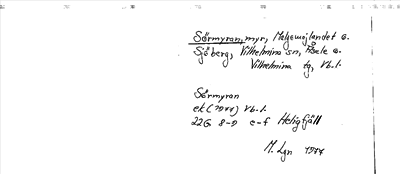 Sörmyran, myr, Malgomajlandet o.
Sjöberg, Vilhelmina sn, Åsele o.
Vilhelmina tg, Vb.l.
Sörmyran
ek (1977) Vb.l.
22G 8-9 e-f Heligfjäll
M. Lgn 1977